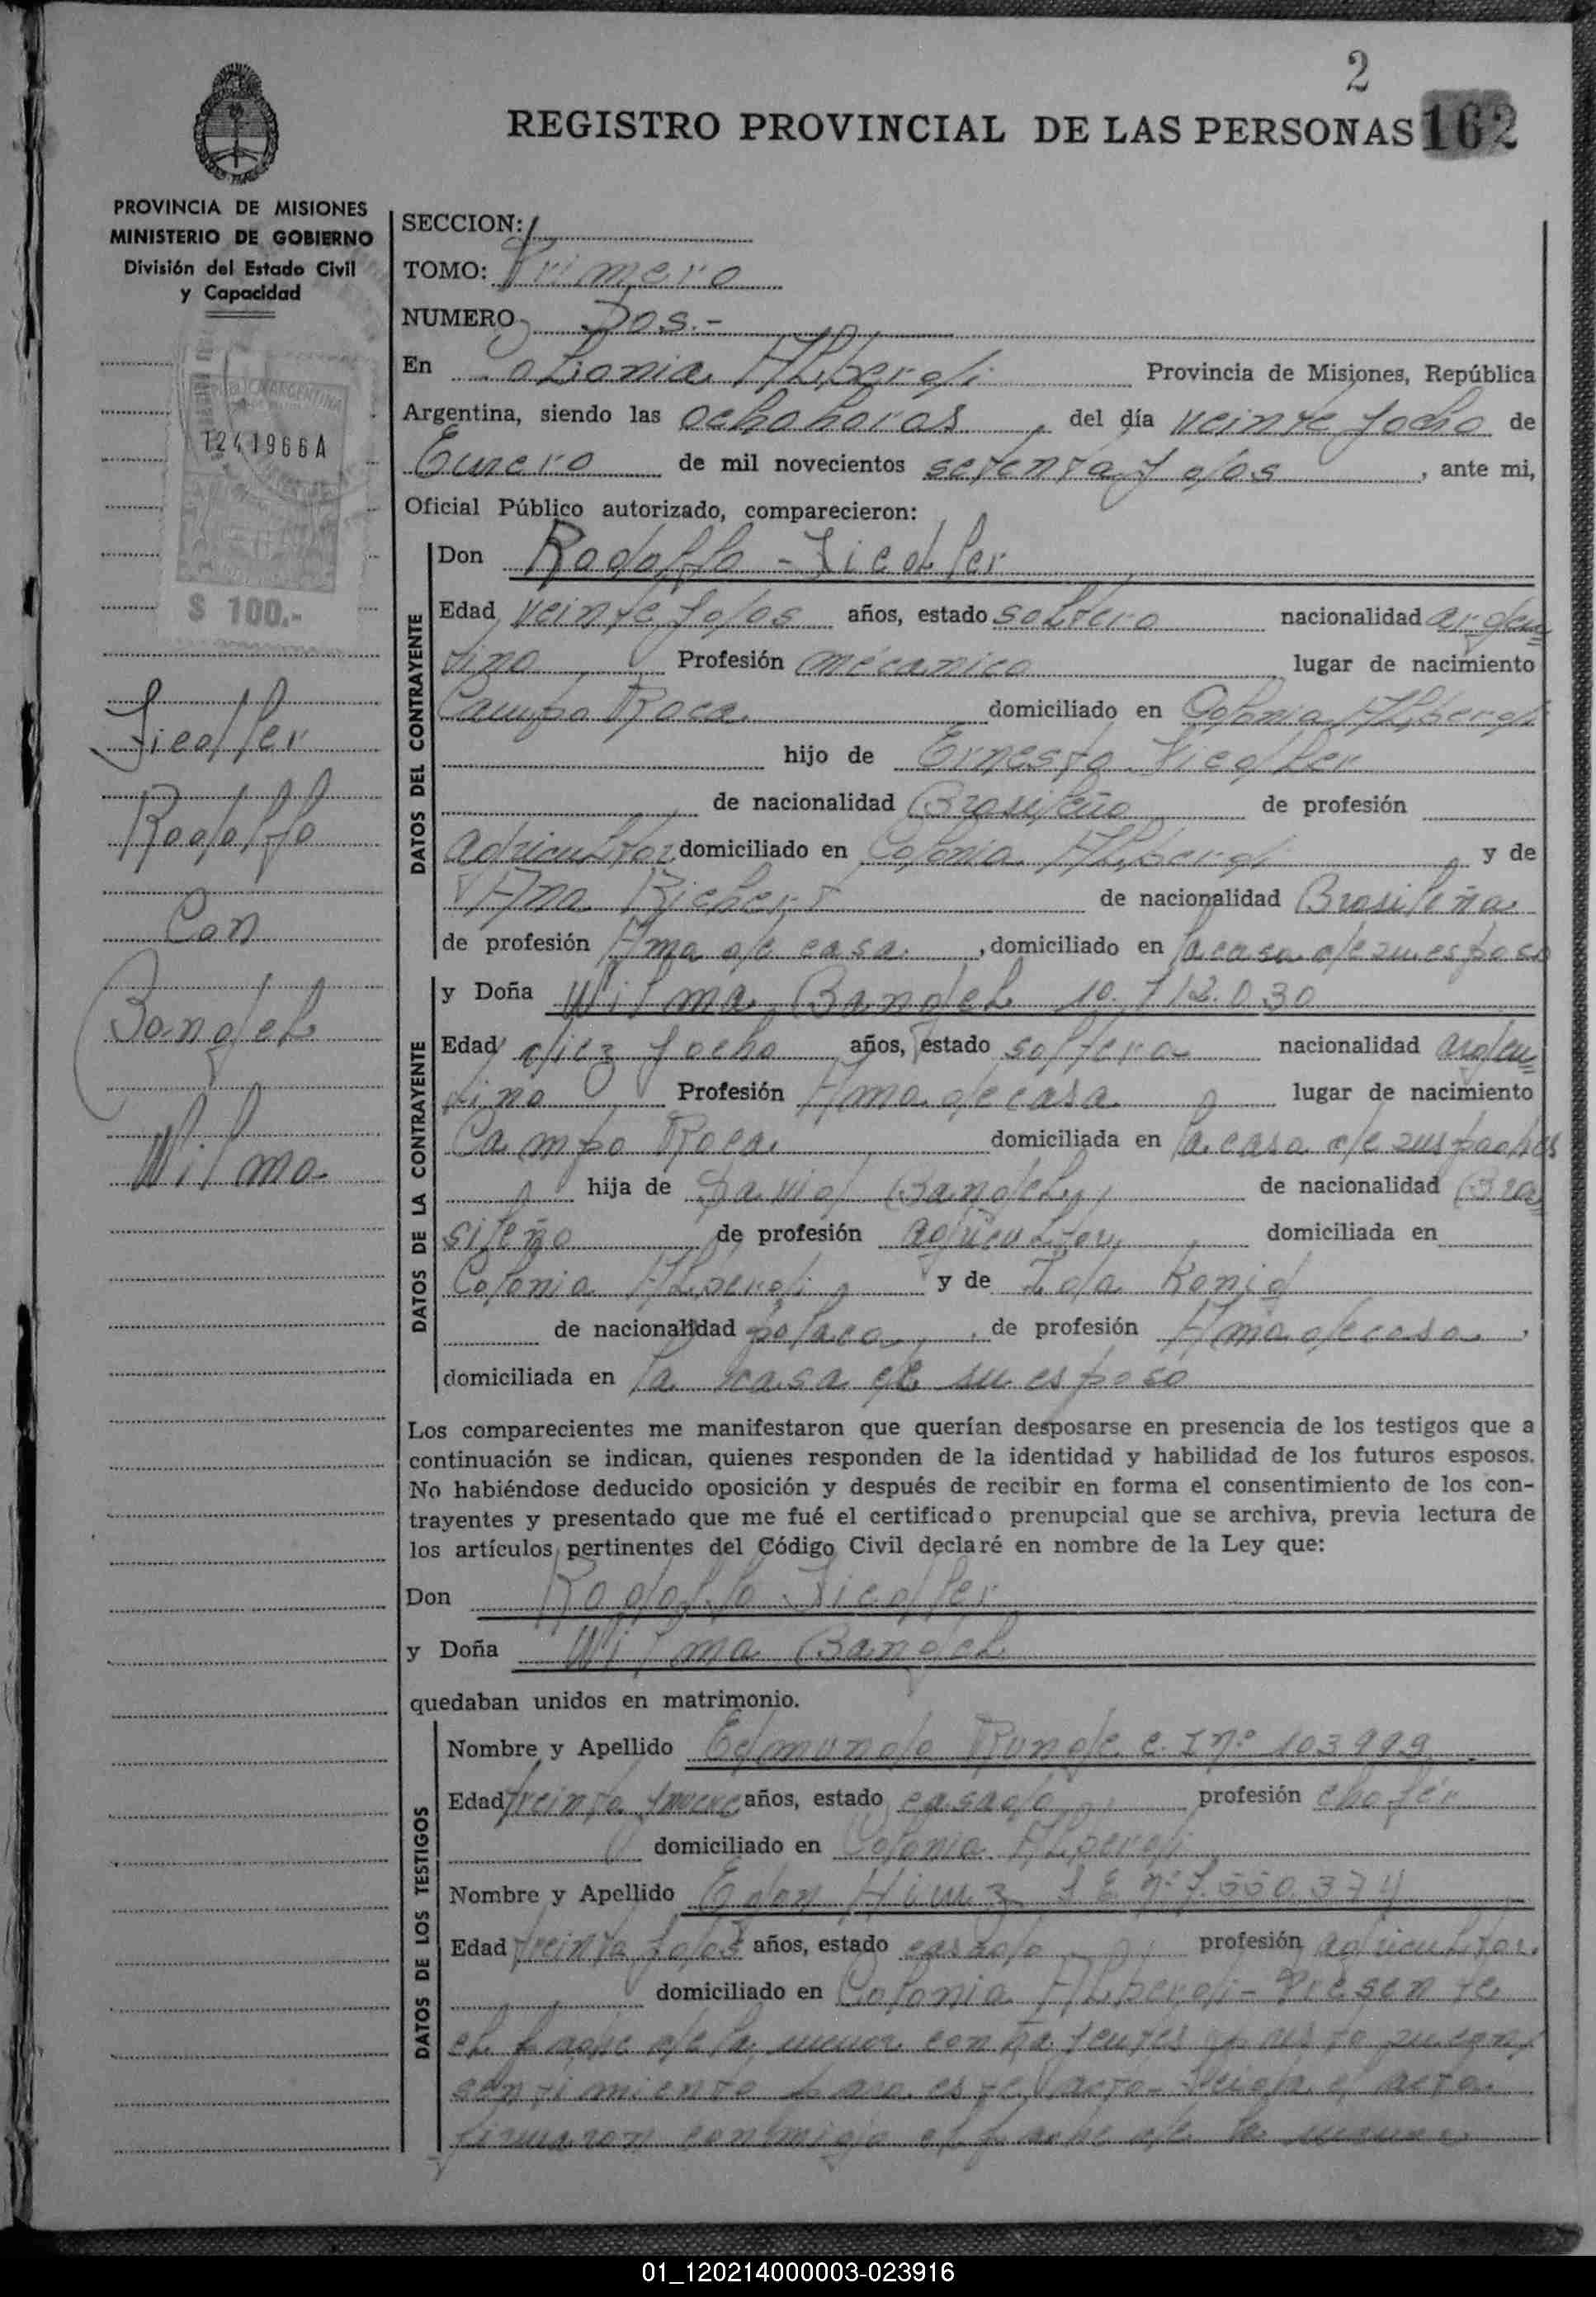 2
REGISTRO PROVINCIAL DE LAS PERSONAS 162
PROVINCIA DE MISIONES
MINISTERIO DE GOBIERNO
División del Estado Civil
y Capacidad
1241966A
$ 100.-
Fiedler
Rodolfo
Con
Bangel
Wilma
SECCION:
TOMO: Primero
NUMERO Dos.-
En Colonia Alberdi Provincia de Misiones, República
Argentina, siendo las ocho horas, del día veinte y ocho de
Enero de mil novecientos setenta y dos, ante mi,
Oficial Público autorizado, comparecieron:
DATOS DEL CONTRAYENTE
Don Rodolfo - Fiedler
Edad veinte y dos años, estado soltero nacionalidad argen
tino Profesión mécanico lugar de nacimiento
Campo Roca domiciliado en Colonia Alberdi
hijo de Ernesto Fiedler
de nacionalidad Brasileño de profesión
agricultor domiciliado en Colonia Alberdi y de
Ana Richert de nacionalidad Brasileña
de profesión Ama de casa, domiciliado en la casa de su esposo
DATOS DE LA CONTRAYENTE
y Doña Wilma Bangel 10.712.030
Edad diez y ocho años, estado soltera nacionalidad argen
tina Profesión Ama de casa lugar de nacimiento
Campo Roca domiciliada en la casa de sus padres
hija de David Bangel, de nacionalidad Bra
sileño de profesión agricultor, domiciliada en
Colonia Alberdi, y de Ida Konig
de nacionalidad polaca, de profesión Ama de casa,
domiciliada en la casa de su esposo
Los comparecientes me manifestaron que querían desposarse en presencia de los testigos que a
continuación se indican, quienes responden de la identidad y habilidad de los futuros esposos.
No habiéndose deducido oposición y después de recibir en forma el consentimiento de los con-
trayentes y presentado que me fué el certificado prenupcial que se archiva, previa lectura de
los artículos pertinentes del Código Civil declaré en nombre de la Ley que:
Don Rodolfo Fiedler
y Doña Wilma Bangel
quedaban unidos en matrimonio.
DATOS DE LOS TESTIGOS
Nombre y Apellido Edmundo Runge C. I nº 103999
Edad treinta y nueve años, estado casado, profesión chofér
domiciliado en Colonia Alberdi
Nombre y Apellido Edon
Edad treinta y dos años, estado casado, profesión agricultor.
domiciliado en Colonia Alberdi - Presente
el padre de la menor su con
sentimiento para este acto - leida el acta
firmaron conmigo el padre de la menor
01_120214000003-023916